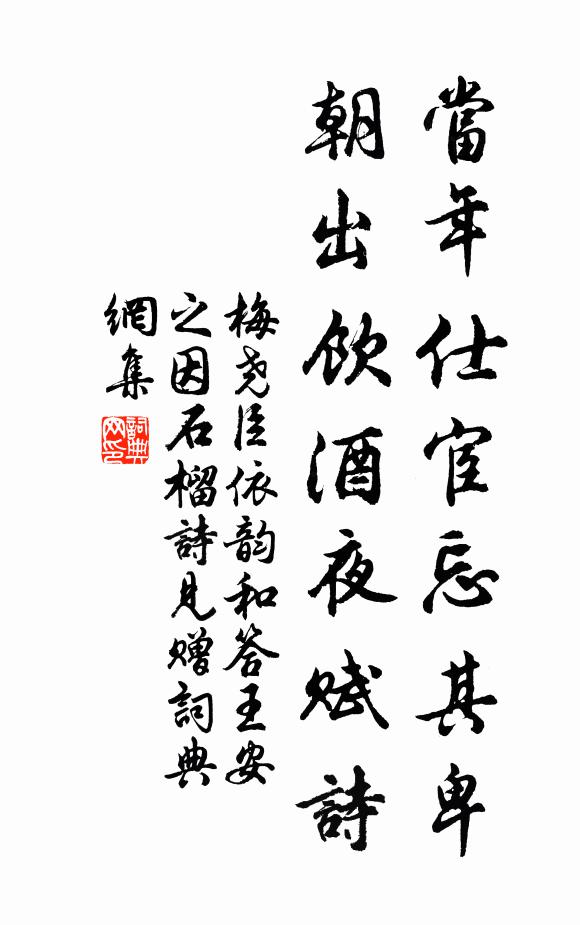 當年仕宦忘其卑
朝出飲酒夜賦詩
梅尧臣依韵和答王安
之因石榴詩見贈詞典
網集
詞典
网印